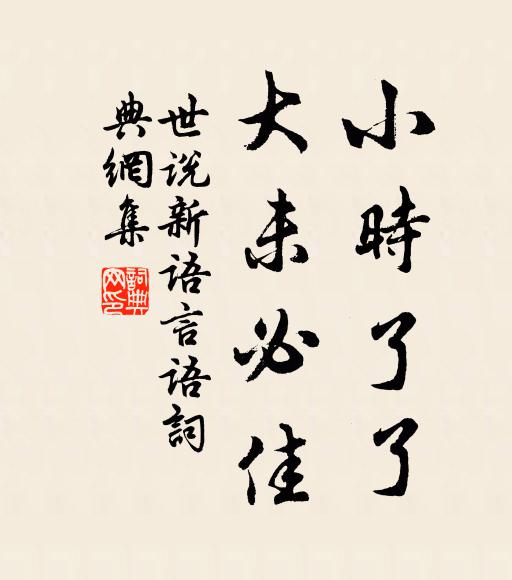 小時了了
大未必佳
世说新语言语詞
典網集
詞典网印